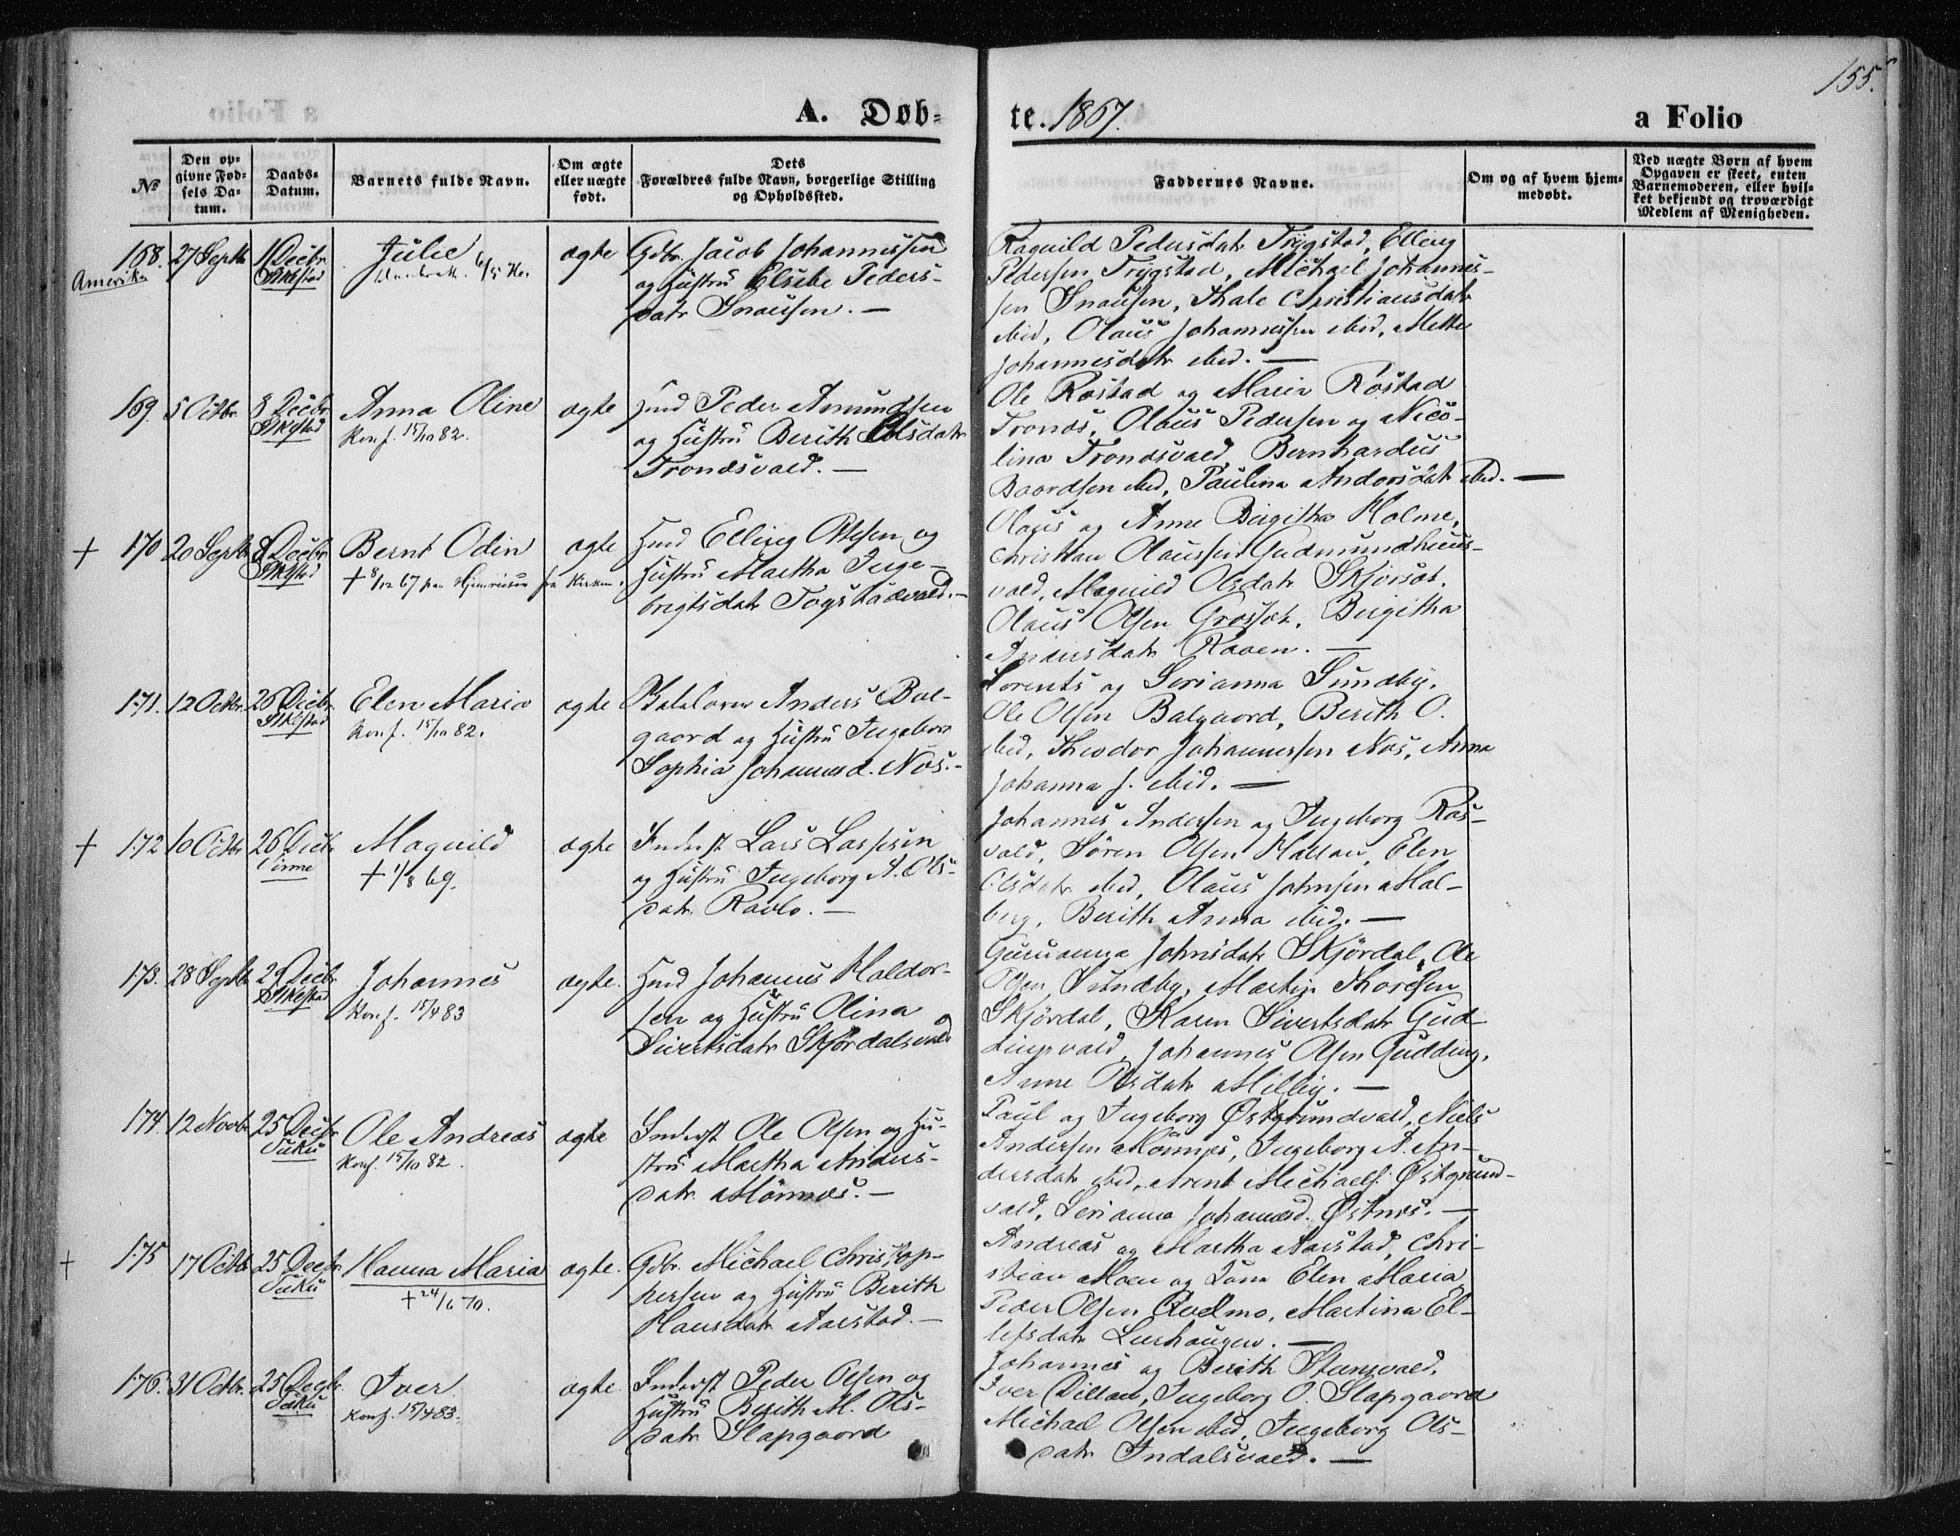 155.
A. Døb=
te. 1867.
a Folio
No
Den op=
givne Fød=
sels Da=
tum.
Daabs=
Datum.
Barnets fulde Navn.
Om ægte
eller uægte
født.
Dets
Forældres fulde Navn, borgerlige Stilling
og Opholdssted.
Faddernes Navne.
Om og af hvem hjem=
medøbt.
Ved uægte Børn af hvem
Opgaven er skeet, enten
Barnemoderen, eller hvil=
ket bekjendt og troværdigt
Medlem af Menigheden.
168. 27 Septb. 1 Decbr. Julie ægte Gdbr. Jacob Johannessen
Amerika
og Hustru Elsebe Peders-
datr Snausen. —
Ragnild Pedersdatr Trygstad, Elling
Pedersen Trygstad, Michael Johannes-
sen Snausen, Thale Christiansdatr
ibid, Olaus Johannessen ibid, Mette
Johannesdatr ibid. —
169. 5 Octbr. 8 Decbr. Anna Oline ægte Hmd Peder Amundsen
Konf. 15/10 82.
og Hustru Berith Olsdatr
Trondsvald. —
Ole Røstad og Maria Røstad
Tronæs, Olaus Pedersen og Nico-
lina Trondsvald, Bernhardus
Baardsen ibid, Paulina Andersdatr ibid. —
+ 170 20 Septb. 8 Decbr. Bernt Odin ægte Hmd Elling Olsen og
+ 8/12 67 paa Hjemreisen fra Kirken.
Hustru Martha Inge-
brigtsdatr Togstadvald. —
Olaus og Anne Birgitha Holme,
Christian Olaussen Gudmundhuus-
vald, Magnild Olsdatr Skjørsæt.
Olaus Olsen Græsset, Birgitha
Andersdatr Raaen. —
171. 12 Octbr. 26 Decbr. Elen Maria ægte Anders Bal-
Konf. 15/10 82.
gaard og Hustru Ingeborg
Sophia Johannesd. Næs. —
Lorents og Serianna Sundby,
Ole Olsen Balgaard, Berith O.
ibid, Theodor Johannessen Næs, Anna
Johanna J. ibid. —
+ 172 16 Octbr. 26 Decbr. Magnild ægte Inderst Lars Larssen
+ 1/8 69.
og Hustru Ingeborg A. Ols-
datr Ravlo. —
Johannes Andersen og Ingeborg Ros-
vald, Søren Olsen Hallan, Elen
Olsdatr ibid, Olaus Johnsen Mal-
berg, Berith Anna ibid. —
173. 28 Septb. 29 Decbr. Johannes ægte. Hmd Johannes Haldor-
Konf. 15/4 83
sen og Hustru Olina
Sivertsdatr Skjørdalsvald
Gurianna Johnsdatr Skjørdal, Ole
Olsen Sundby, Martin Thoresen
Skjørdal, Karen Sivertsdatr Gud-
dingsvald, Johannes Olsen Gudding,
Anne Olsdatr Milby. —
174. 12 Novbr. 25 Decbr. Ole Andreas ægte Inderst Ole Olsen og Hu-
Konf. 15/10 82.
stru Martha Anders-
datr Mønnæs. —
Paul og Ingeborg Østgrundvald, Niels
Andersen Mønnæs, Ingeborg A. An-
dersdatr ibid, Arent Michaels. Østgrund-
vald, Serianna Johannesd. Østnæs. —
+ 175 17 Octbr. 25 Decbr. Hanna Maria ægte. Gdbr. Michael Christop-
+ 24/6 70.
hersen og Hustru Berith
Hansdatr Aarstad. —
Andreas og Martha Aarstad, Chri-
stian Moen og Kone Elen Maria
Peder Olsen Kvelmo, Martina El-
lefsdatr Leerhaugen. —
176. 31 Octbr. 25 Decbr. Iver ægte Inderst Peder Olsen og
Konf. 15/4 83.
Hustru Berith M. Ols-
datr Slapgaard
Johannes og Berith Stensvald,
Iver Dillan, Ingeborg O. Slapgaard
Michael Olsen ibid, Ingeborg Ols-
datr Indalsvald. —